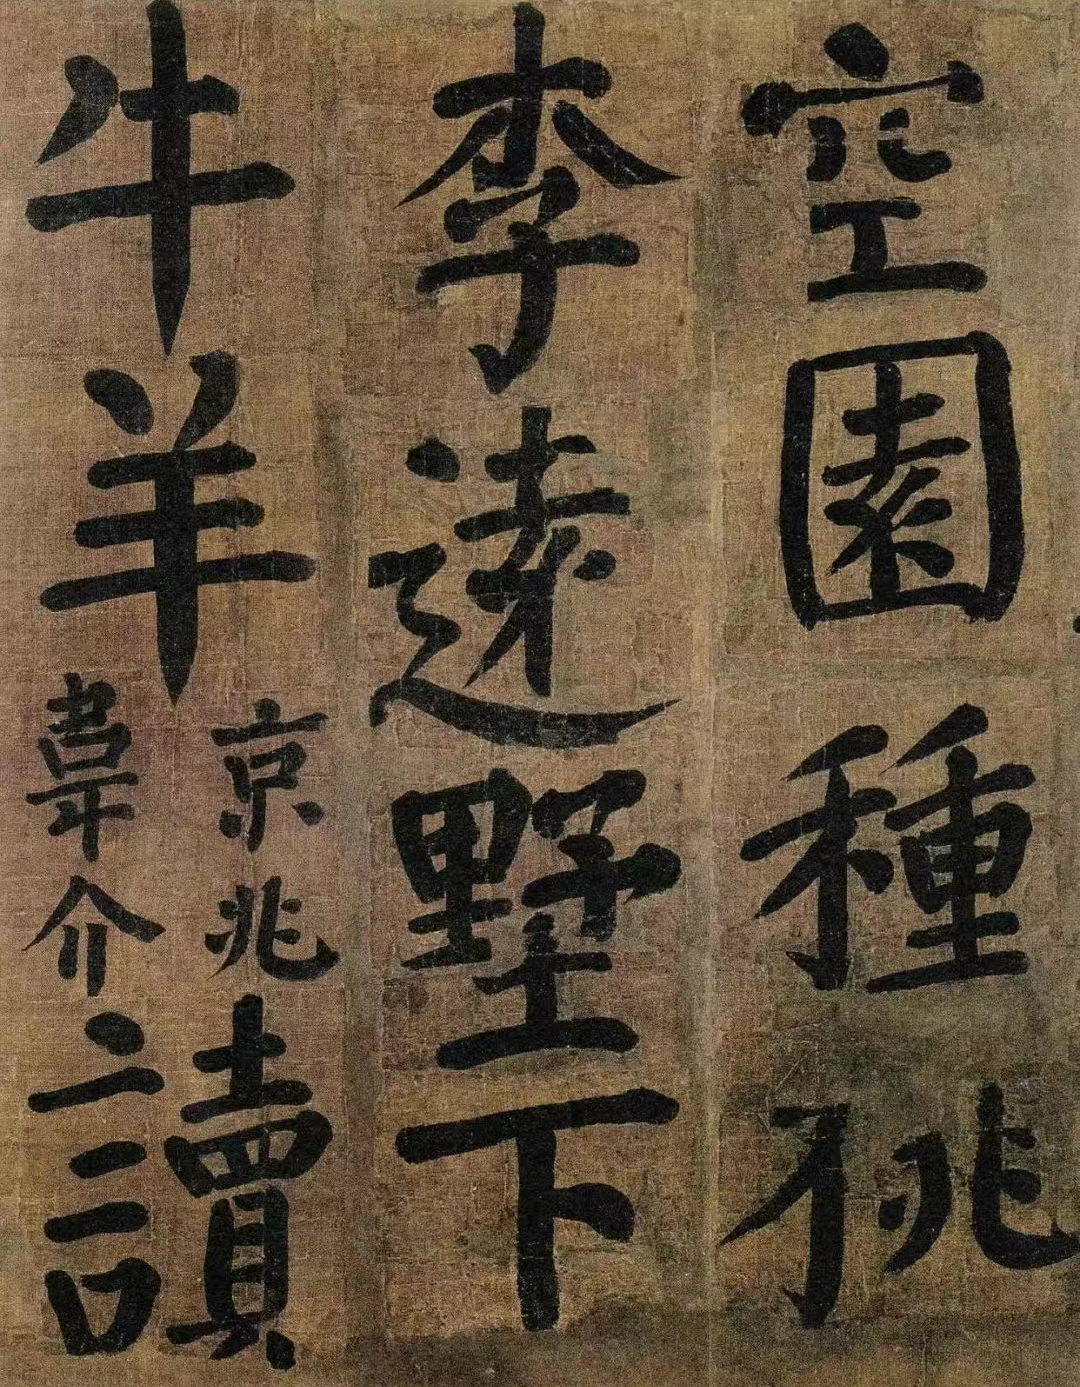 空園種桃
李遠墅下
牛羊京兆韋介讀